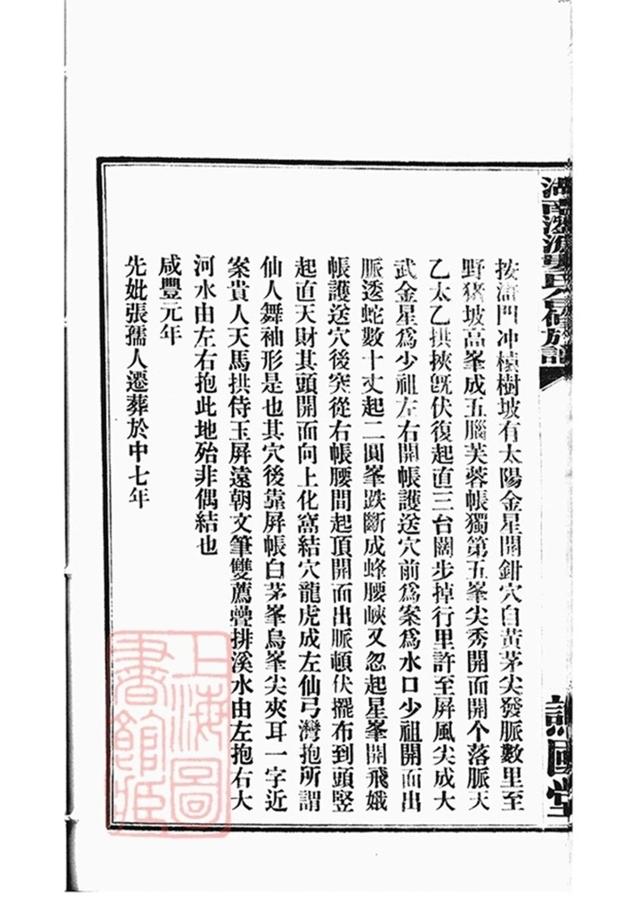 按滸門冲樟樹坡有太陽金星開鉗穴自黃茅尖發脈數里至
野猪坡高峯成五腦芙蓉帳獨第五峯尖秀開面開个落脈天
乙太乙拱挾旣伏復起直三台闊步掉行里許至屏風尖成大
武金星爲少祖左右開帳護送穴前爲案爲水口少祖開面出
脈透蛇數十丈起二圓峯跌斷成蜂腰峽又忽起星峯開飛蛾
帳護送穴後突從右帳腰間起頂開面出脈頓伏擺布到頭竪
起直天財其頭開面向上化窩結穴龍虎成左仙弓灣抱所謂
仙人舞袖形是也其穴後靠屏帳白茅峯烏峯尖夾耳一字近
案貴人天馬拱侍玉屏遠朝文筆雙薦疊排溪水由左抱右大
河水由左右抱此地殆非偶結也
咸豐元年
先妣張孺人遷葬於中七年
上海圖書館藏